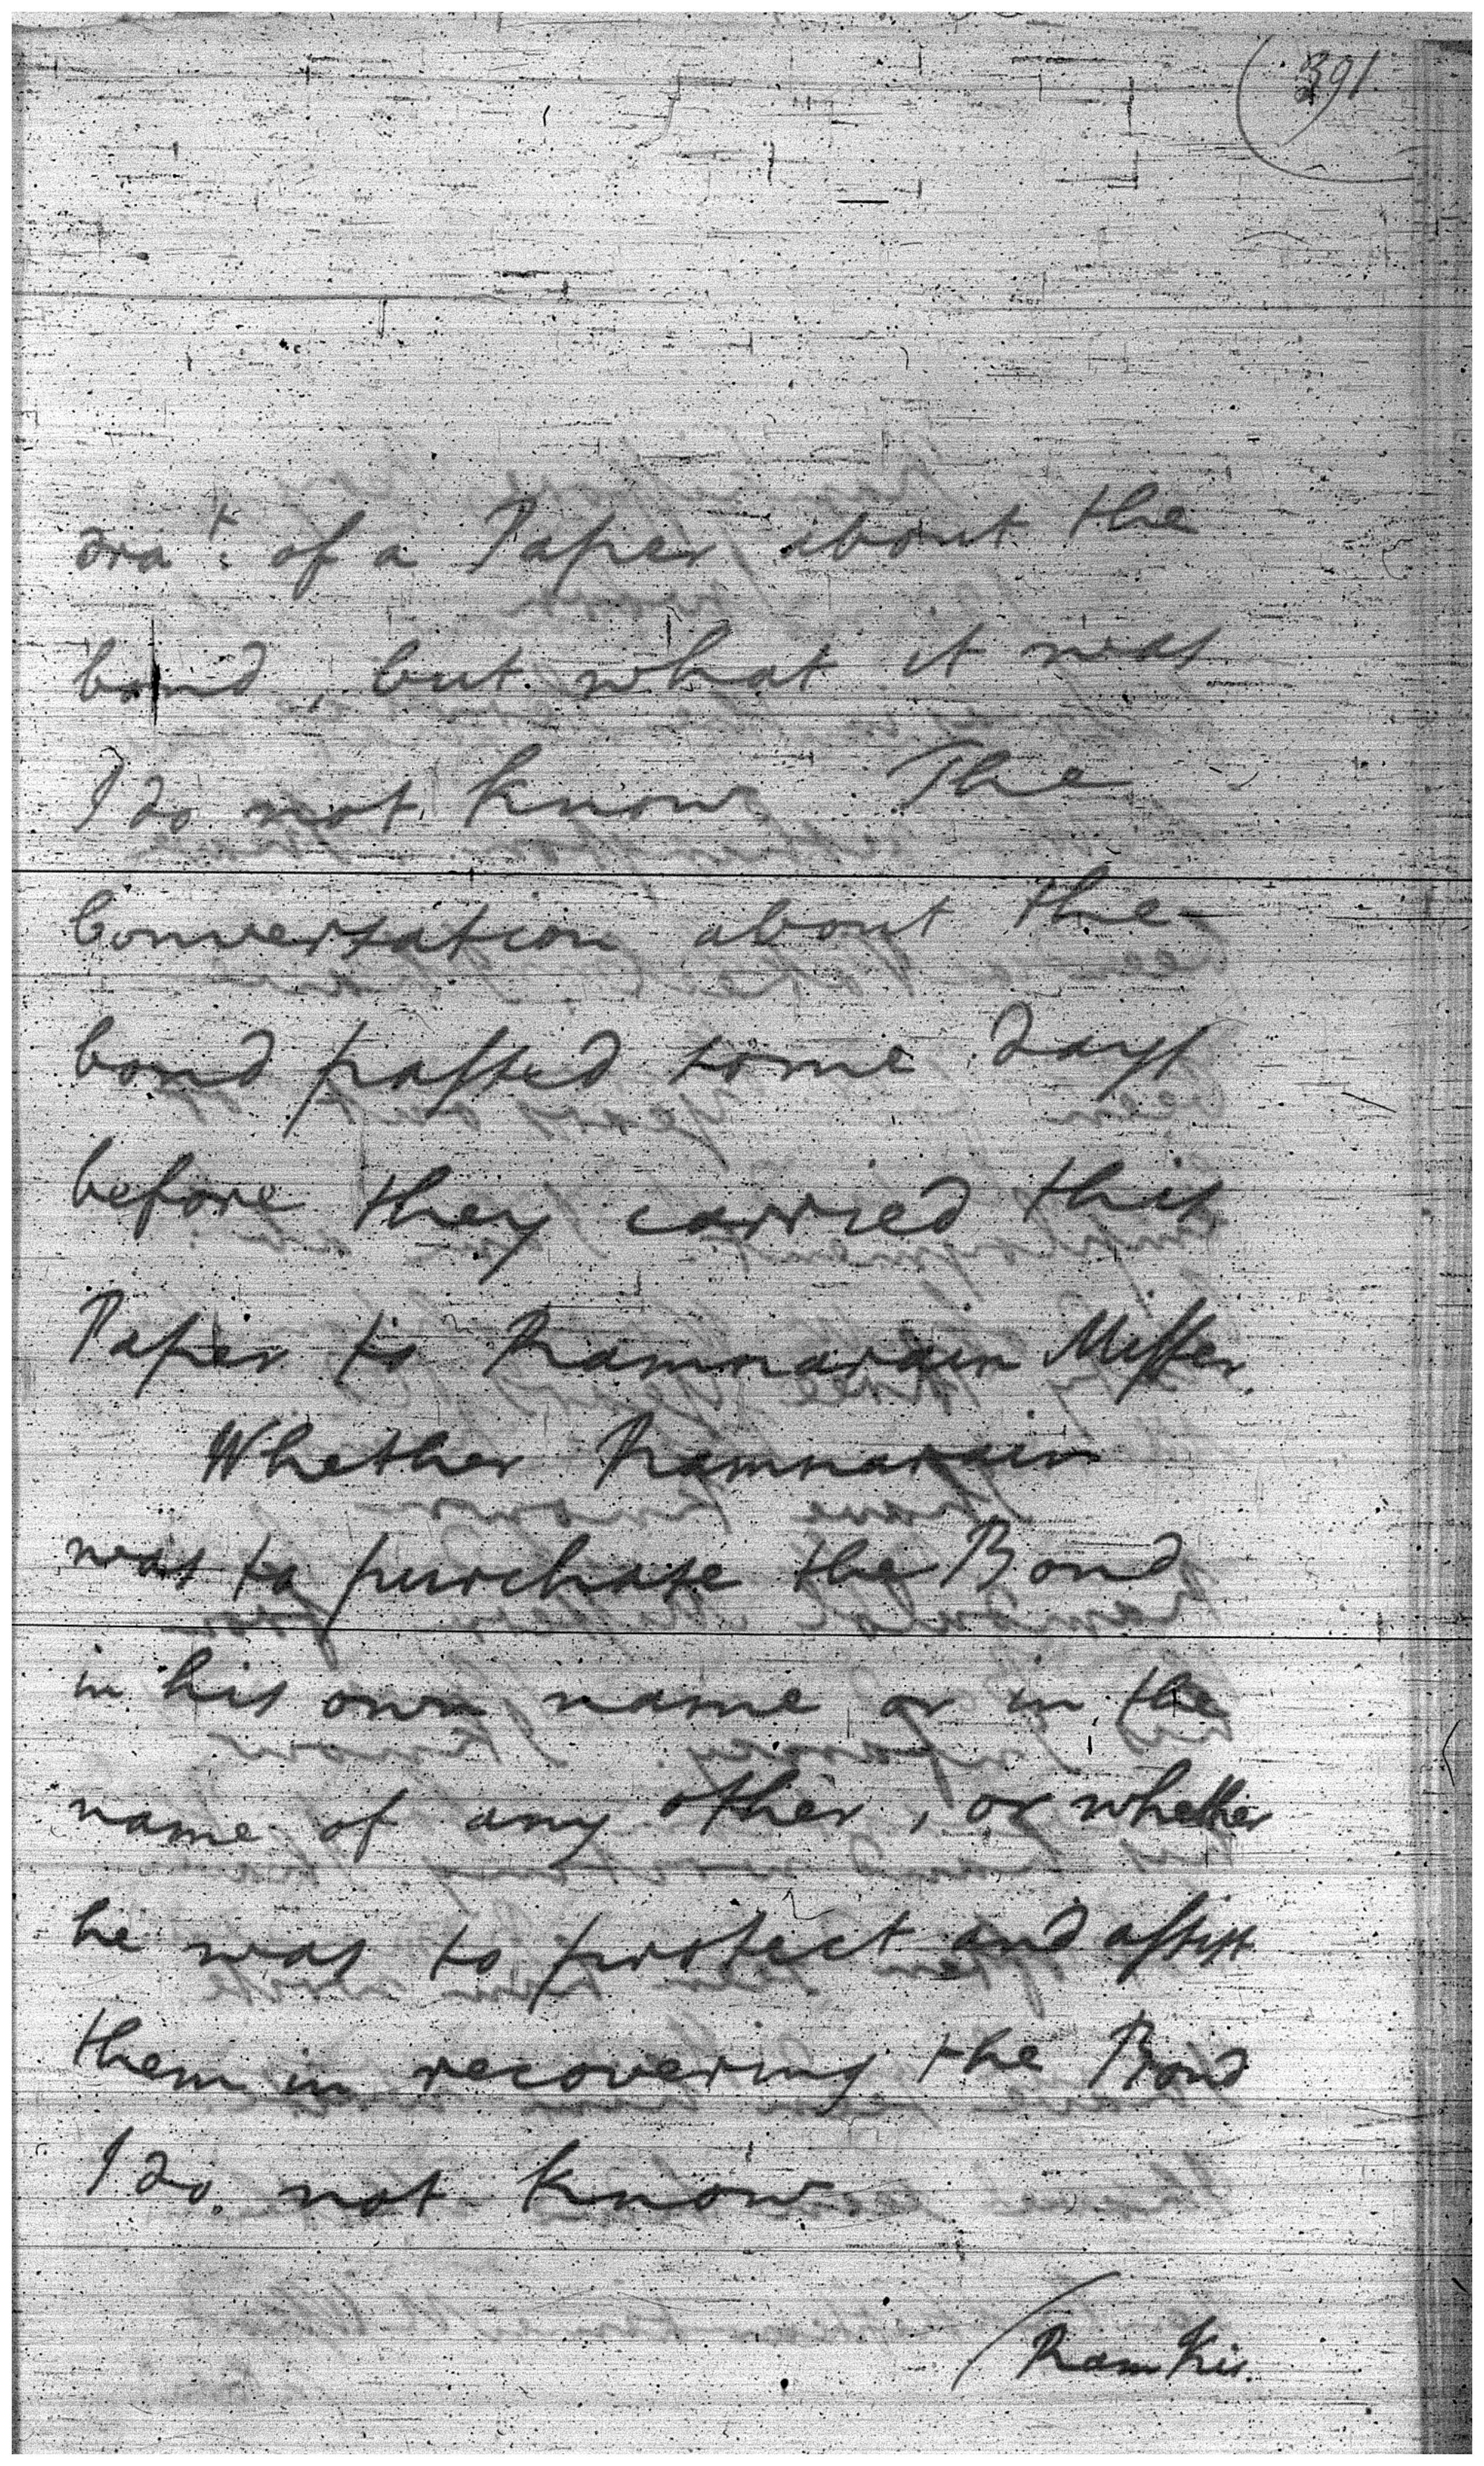 391
dra.t of a Paper about the
bond, but what it was
I do not know The
Conversation about the
bond passed some days
before they carried this
Paper to Ramnarain Misser.
Whether Ramnarain
was to purchase the Bond
in his own name or in the
name of any other, or whether
he was to protect and assist
them in recovering the Bond
I do not know
Ram Kis.